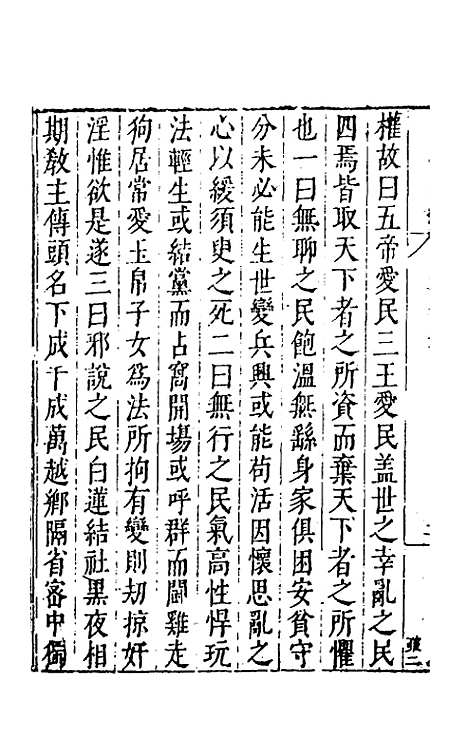 權故曰五帝愛民三王愛民蓋世之幸亂之民
四焉皆取天下者之所資而棄天下者之所懼
也一曰無聊之民飽溫無繇身家俱困安貧守
分未必能生世變兵興或能苟活因懷思亂之
心以緩須臾之死二曰無行之民氣高性悍玩
法輕生或結黨而占窩開場或呼群而鬬雞走
狗居常愛玉帛子女為法所拘有變則刼掠奸
淫惟欲是遂三曰邪說之民白蓮結社黑夜相
期教主傳頭名下成千成萬越鄉隔省密中獨